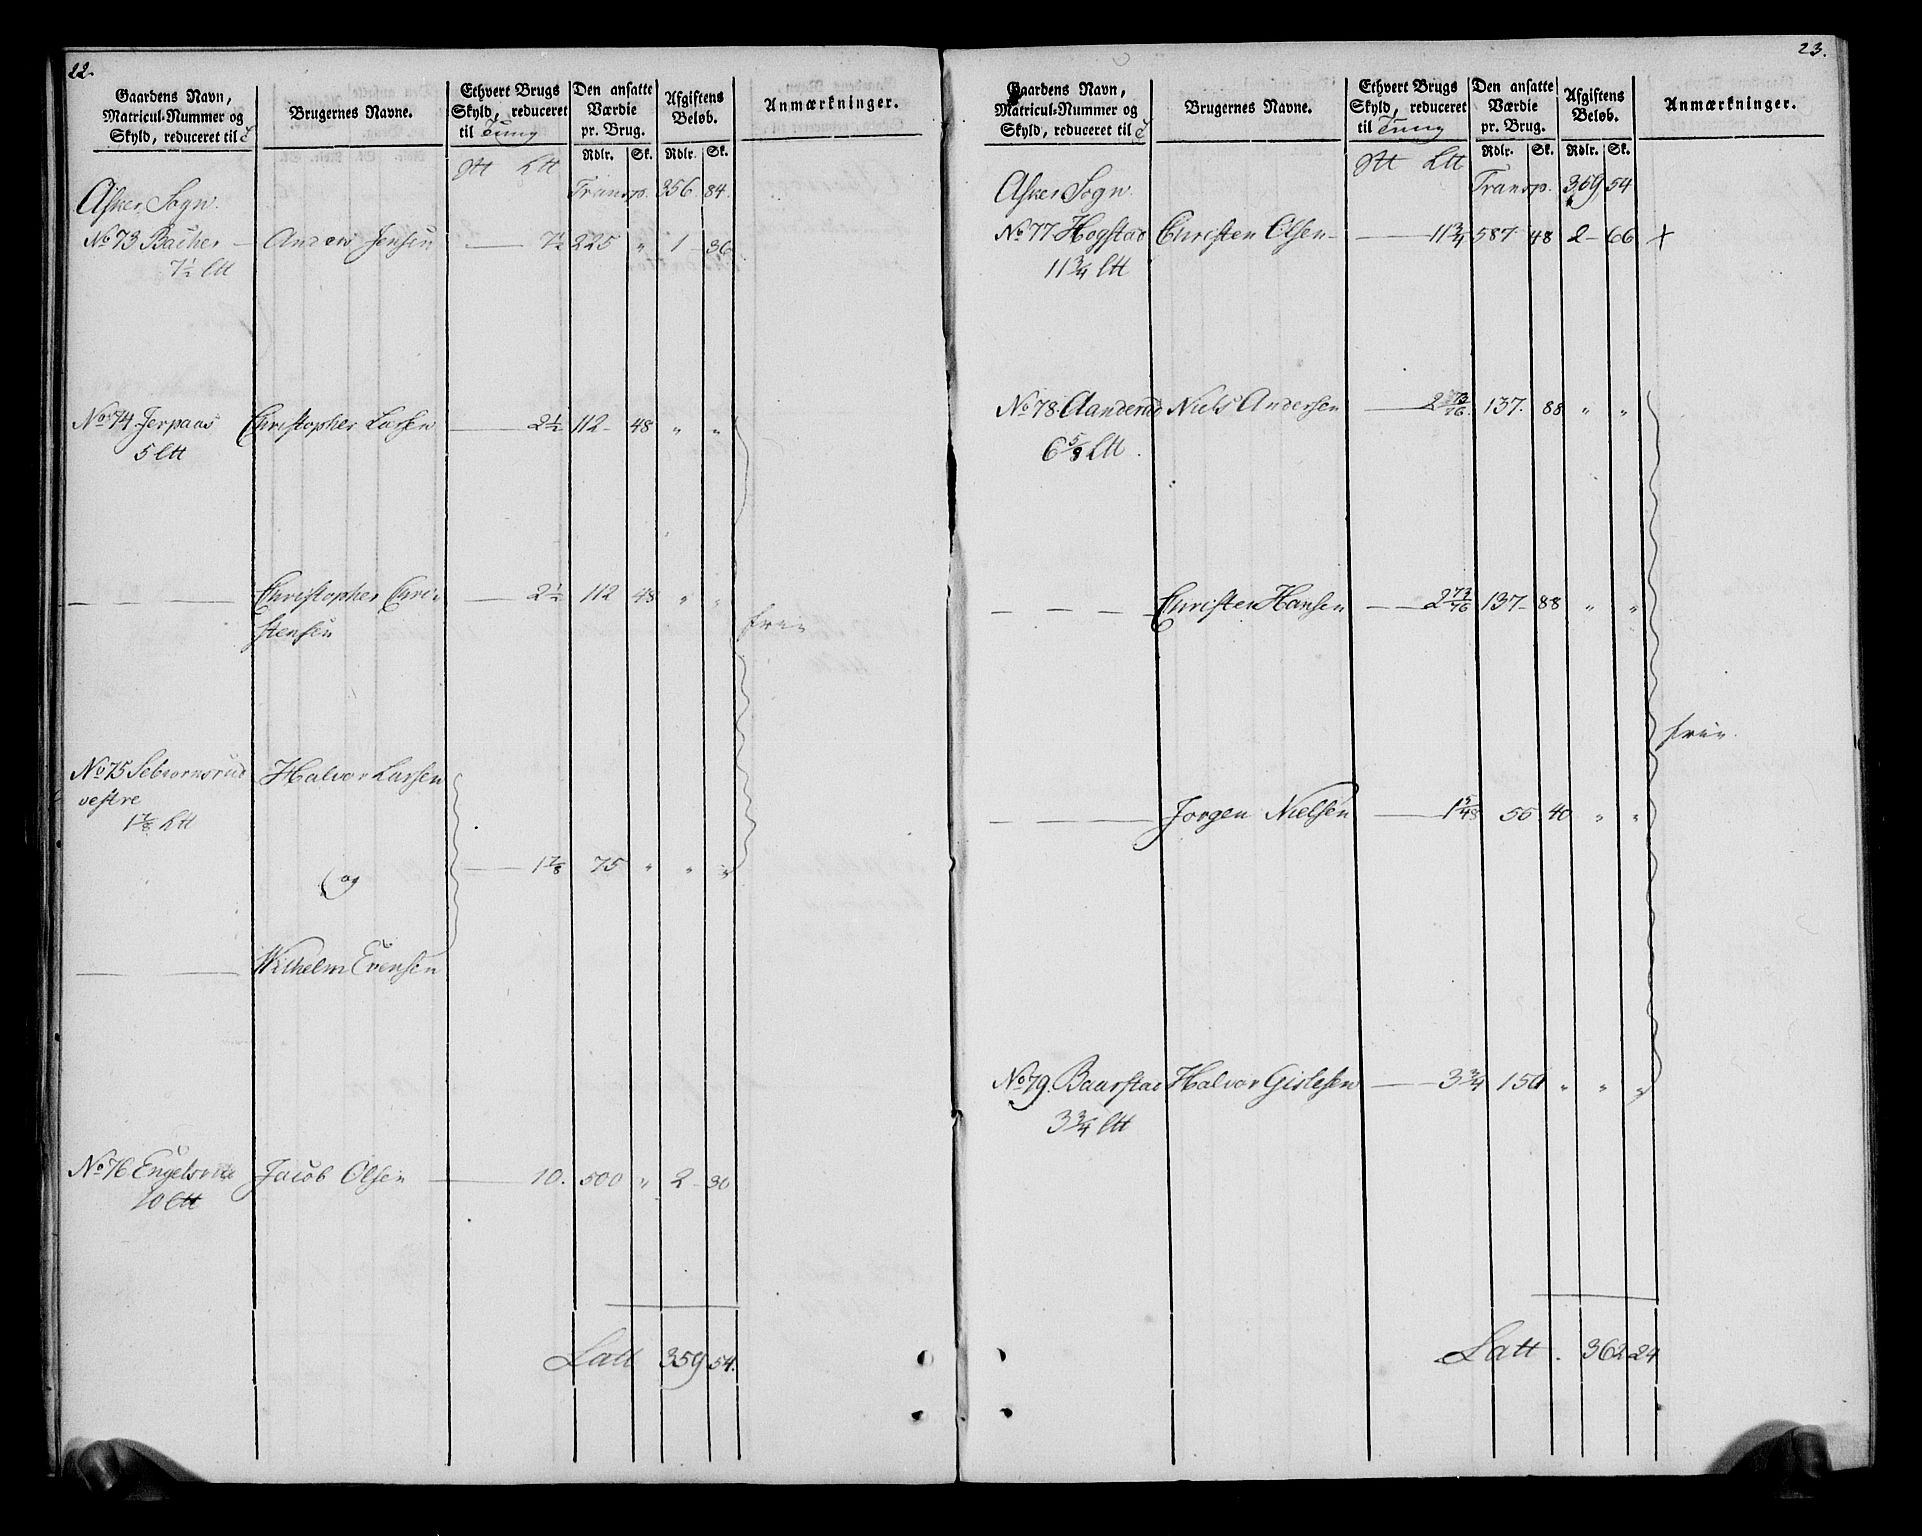 22.
Gaardens Navn, Matricul-Nummer og Skyld, reduceret til
Brugernes Navne.
Ethvert Brugs Skyld, reduceret til Tung
Den ansatte Værdie pr. Brug.
Afgiftens Beløb.
Anmærkninger.
Rdlr. Sk. Rdlr. Sk.
Ltt
Asker Sogn. Transp. 356 84.
No 73 Bacher — Anders Jensen — 7½ 225 " 1 - 36
7½ Ltt
No 74 Jerpaas Christopher Larsen — 2½ 112 - 48 " "
5 Ltt
— — Christopher Chri- — 2½ 112 48 " "
stensen
frie
No 75 Sebiornsrud Halvor Larsen
vestre
1⅞ Ltt
og — 1⅞ 75 " " "
— — Wilhelm Evensen
No 76 Engelsrud Jacob Olsen — 10. 500 " 2 - 30
10 Ltt
Latt 359 54.
23.
Gaardens Navn, Matricul-Nummer og Skyld, reduceret til
Brugernes Navne.
Ethvert Brugs Skyld, reduceret til Tung
Den ansatte Værdie pr. Brug.
Afgiftens Beløb.
Anmærkninger.
Rdlr. Sk. Rdlr. Sk.
Ltt
Asker Sogn. Transp. 359 54
No 77 Hogstad Christen Olsen — 11¾ 587 48 2 - 66 +
11¾ Ltt
No 78. Aanderud Niels Andersen — 2 73/76. 137. 88 " "
6⅝ Ltt.
— — — Christen Hansen — 2 73/76 137 - 88 " "
frie.
— — Jorgen Nielsen — 56 40 " "
No 79. Baarstad Halvor Gislesen — 3¾ 150 " " "
3¾ Ltt
Latt. 362 24